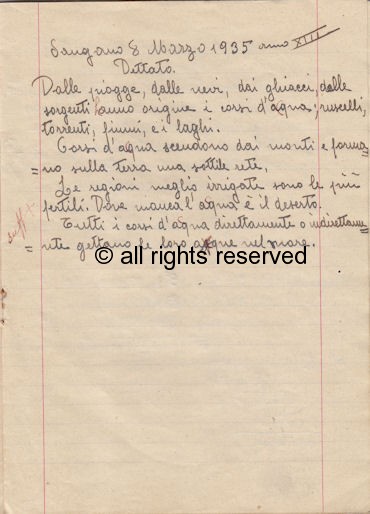 Sangano 8 Marzo 1935 anno XIII
Dettato.
Dalle piogge, dalle nevi, dai ghiacci, dalle
sorgenti anno origine i corsi d'aqua; ruscelli,
torrenti, fiumi, e i laghi.
Corsi d'aqua scendono dai monti e forma
= no sulla terra una sottile rete.
Le regioni meglio irrigate sono le più
fertili. Dove manca l'aqua è il deserto.
Tutti i corsi d'aqua direttamente o indirettame
= nte gettano le loro aque nel mare. =
© all rights reserved